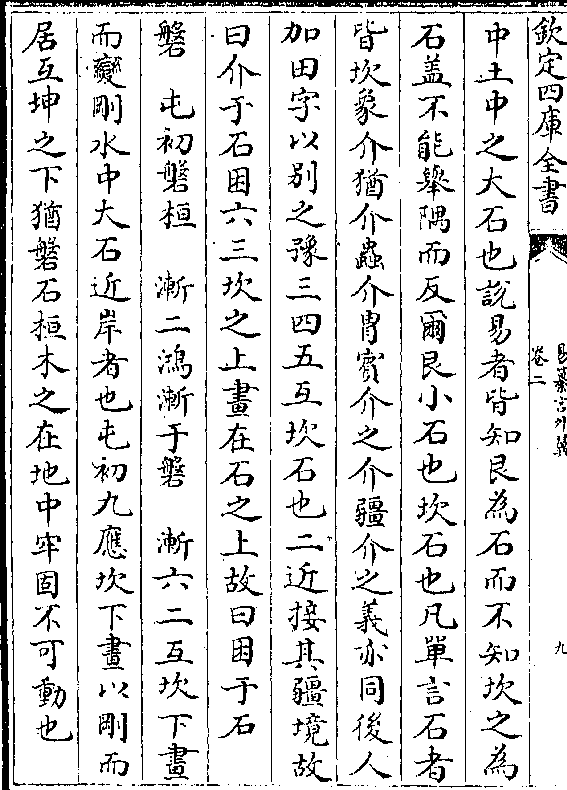 欽定四庫全書
易纂言外翼
卷二
九
中土中之大石也說易者皆知艮為石而不知坎之為
石盖不能舉隅而反爾艮小石也坎石也凡單言石者
皆坎象介猶介蟲介胄賓介之介疆介之義亦同後人
加田字以别之豫三四五互坎石也二近接其疆境故
曰介于石困六三坎之上畫在石之上故曰困于石
磐　屯初磐桓　漸二鴻漸于磐　漸六二互坎下畫
而變剛水中大石近岸者也屯初九應坎下畫以剛而
居互坤之下猶磐石桓木之在地中牢固不可動也